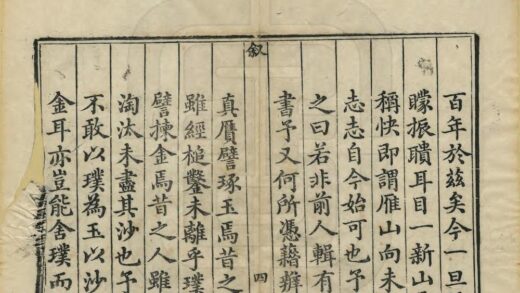 百年於茲矣今一旦
矇振聵耳目一新山
稱快即謂雁山向未
志志自今始可也予
之曰若非前人輯有
書予又何所憑藉辨
叙
四
真贋譬琢玉焉昔之
雖經槌鑿未離乎璞
譬揀金焉昔之人雖
淘汰未盡其沙也予
不敢以璞為玉以沙
金耳亦豈能舍璞而